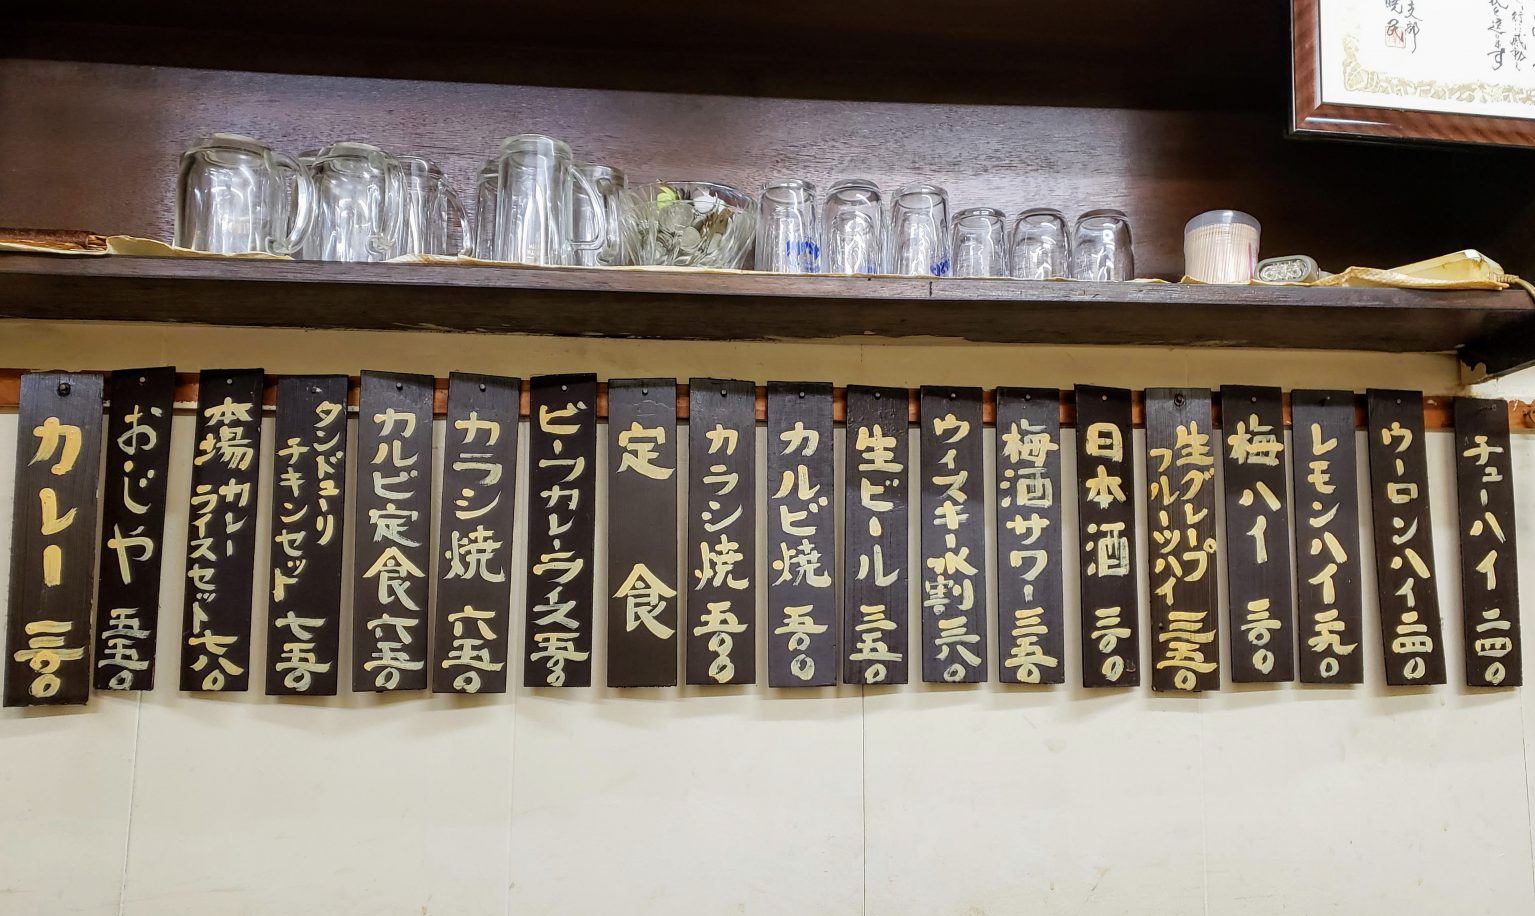 チューハイ 二四〇
ウーロンハイ 二四〇
レモンハイ 二九〇
梅ハイ 三〇〇
生グレープ
フルーツハイ 三五〇
日本酒 三〇〇
梅酒サワー 三五〇
ウイスキー水割 三八〇
生ビール 三五〇
カルビ焼 五〇〇
カラシ焼 五〇〇
定食
ビーフカレーライス
カラシ焼 六五〇
カルビ定食 六五〇
タンドューリ
チキンセット 七五〇
本場カレー
ライスセット 七八〇
おじや 五五〇
カレー 三〇〇